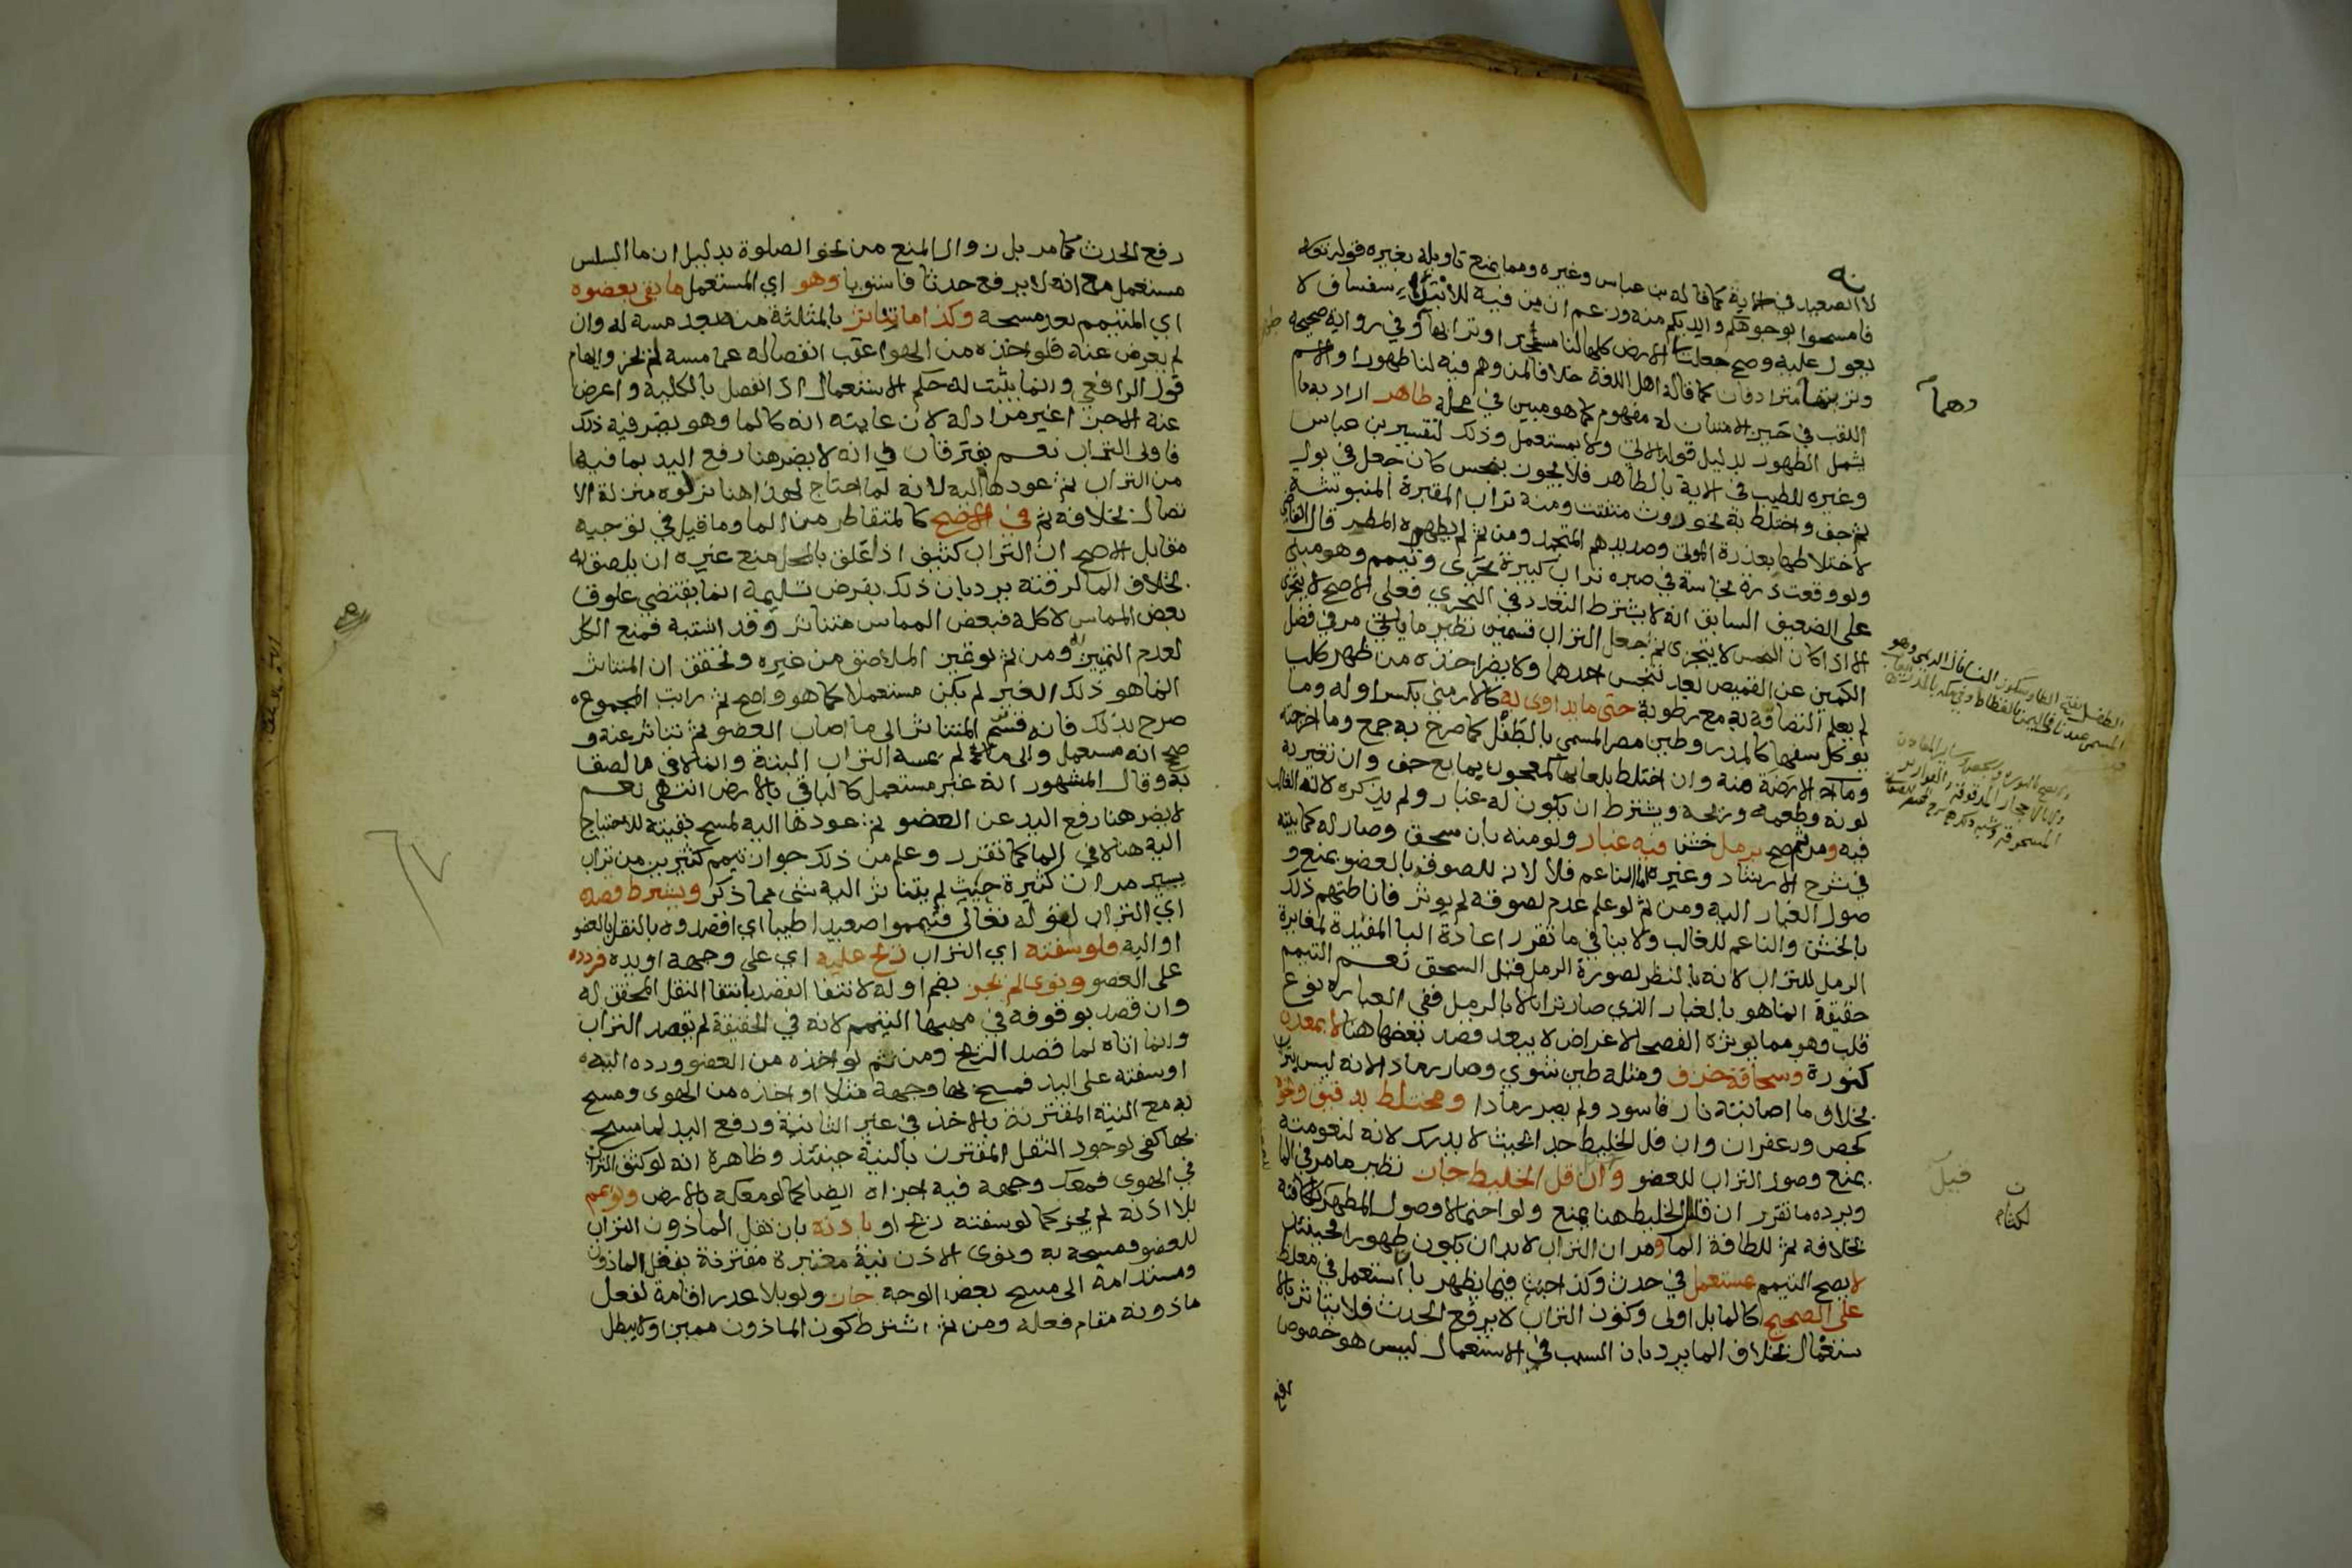 لا الصعيد في الاية كما قاله بن عباس وغيره ومما يمنع تاويله بغيره قوله تعالى
فامسحوا بوجوهكم وايديكم منه وزعم ان من فيه للابتداء سفساف لا
يعول عليه وصح جعلت الارض كلها لنا مسجدا وترابها وفي رواية صحيحة
وتربتها مترادفان كما قاله اهل اللغة خلافا لمن وهم فيه لنا طهورا والاسم
اللقب في حيز الامتنان له مفهوم كما هو مبين في محله طاهر اراد به ما
يشمل الطهور بدليل قوله الاتي ولا بمستعمل وذلك لتفسير بن عباس
وغيره الطيب في الاية بالطاهر فلا يجوز بنجس كان جعل في بول
ثم جف واختلط به نحو روث متفتت ومنه تراب المقبرة المنبوشة
لاختلاطها بعذرة الموتى وصديدهم المتجمد ومن ثم لم يطهره المطر قال القاضي
ولو وقعت ذرة نجاسة في صبره تراب كبيرة تحرى وتيمم وهو مبني
على الضعيف السابق انه لا يشترط التعدد في التحري فعلى الاصح لا يتحرى
الا اذا كان النجس لا يتجزى ثم جعل التراب قسمين نظير ما ياتي مر في فصل
الكمين عن القميص لعدم تنجس احدهما ولا يضر اخذه من ظهر كلب
لم يعلم التصاقه به مع رطوبة حتى ما يداوى به كالارمني بكسر اوله وما
يوكل سفها كالمدر وطين مصر المسمى بالطفل كما صرح به جمع وما اخرجته
ومنه الارضة منه وان اختلط بلعابها كمعجون بمايع جف وان تغير به
لونه وطعمه وريحه ويشترط ان يكون له غبار ولم يذكره لانه الغالب
فيه ومن ثم صح برمل خشن فيه غبار ولو منه بان سحق وصار له كما بينته
في شرح الارشاد وغيره اما الناعم فلا لانه للصوقه بالعضو يمنع و
صول الغبار اليه ومن ثم لو علم عدم لصوقه لم يوثر فاناطتهم ذلك
بالخشن والناعم للغالب ولا ينافي ما تقرر اعادة البا المفيدة لمغايرة
الرمل للتراب لانه بالنظر لصورة الرمل قبل السحق نعم التيمم
حقيقة انما هو بالغبار الذي صار ترابا لا بالرمل ففي العباره نوع
قلب وهو مما يوثره الفصحا لاغراض لا يبعد قصد بعضها هنا لا بمعدن
كنورة وسحاقة خزف ومثله طين شوي وصار رمادا لانه ليس بتراب
بخلاف ما اصابته نار فاسود ولم يصر رمادا ومختلط بدقيق ونحوه
كجص وزعفران وان قل الخليط جدا بحيث لا يدرك لانه لنعومته
يمنع وصول التراب للعضو وان قل الخليط جاز نظير ما مر في الما
ويرده ما تقرر ان قليل الخليط هنا يمنع ولو احتمالا وصول المطهر لكثافته
بخلافه ثم للطافة الما ومر ان التراب لا بد ان يكون طهورا فحينئذ
لا يصح التيمم بمستعمل في حدث وكذا خبث فيما يظهر بان استعمل في مغلظ
على الصحيح كالما بل اولى وكون التراب لا يرفع الحدث فلا يتاثر بالا
ستعمال بخلاف الما يرد بان السبب في الاستعمال ليس هو خصوص
رفع
وهما
الطفل بفتح الطا وسكون الفا قال الديبي وهو
قيل
رفع الحدث كما مر بل زوال المنع من نحو الصلوة بدليل ان ما السلس
مستعمل مع انه لا يرفع حدثا فاستويا وهو اي المستعمل ما بقي بعضوه
اي المتيمم بعد مسحه وكذا ما تناثر بالمثلثة منه بعد مسه له وان
لم يعرض عنه فلو اخذه من الهوا عقب انفصاله عما مسه لم يجز وايهام
قول الرافعي وانما يثبت له حكم الاستعمال اذا انفصل بالكلية واعرض
عنه الاجزا غير مراد له لان غايته انه كالما وهو يضر فيه ذلك
فاولى التراب نعم يفترقان في انه لا يضر هنا رفع اليد بما فيها
من التراب ثم عودها اليه لانه لما احتاج لهذا هنا نزلوه منزلة الا
تصال بخلافه ثم في الاصح كالمتقاطر من الما وما قيل في توجيه
مقابل الاصح ان التراب كثيف اذا علق بالمحل منع غيره ان يلصق به
بخلاف الما لرقته يرد بان ذلك بفرض تسليمه انما يقتضي علوق
بعض المماس لا كله فبعض المماس متناثر وقد اشتبه فمنع الكل
لعدم التمييز ومن ثم لو تميز الملاصق من غيره وتحقق ان المتناثر
انما هو ذلك الغير لم يكن مستعملا كما هو واضح ثم رايت المجموع
صرح بذلك فانه قسم المتناثر الى ما اصاب العضو ثم تناثر عنه و
صحح انه مستعمل والى ما لم يمسه التراب البتة وانما لاقى ما لصق
به وقال المشهور انه غير مستعمل كالباقي بالارض انتهى نعم
لا يضر هنا رفع اليد عن العضو ثم عودها اليه لمسح بقيته للاحتياج
اليه هنا لا في الما كما تقرر وعلم من ذلك جواز تيمم كثيرين من تراب
يسير مرات كثيرة حيث لم يتناثر اليه شى مما ذكر ويشترط قصده
اي التراب لقوله تعالى فتيمموا صعيدا طيبا اي اقصدوه بالنقل بالعضو
او اليه فلو سفته اي التراب ريح عليه اي على وجهه او يده فردده
على العضو ونوى لم يجز بضم اوله لانتفا القصد بانتفا النقل المحقق له
وان قصد بوقوفه في مهبها التيمم لانه في الحقيقة لم يقصد التراب
وانما اتاه لما قصد الريح ومن ثم لو اخذه من العضو ورده اليه
او سفته على اليد فمسح بها وجهه مثلا او اخذه من الهوى ومسح
به مع النية المقترنة بالاخذ في غير الثانية ورفع اليد لما مسح
بها كفى لوجود النقل المقترن بالنية حينئذ وظاهره انه لو كثف التراب
في الهوى فمعك وجهه فيه اجزاه ايضا كما لو معكه بالارض ولو يمم
بلا اذنه لم يجز كما لو سفته ريح او باذنه بان نقل الماذون التراب
للعضو ومسحه به ونوى الاذن نية معتبرة مقترنة بفعل الماذون
ومستدامة الى مسح بعض الوجه جاز ولو بلا عذر اقامة لفعل
ماذونه مقام فعله ومن ثم اشترط كون الماذون مميزا ولا يبطل